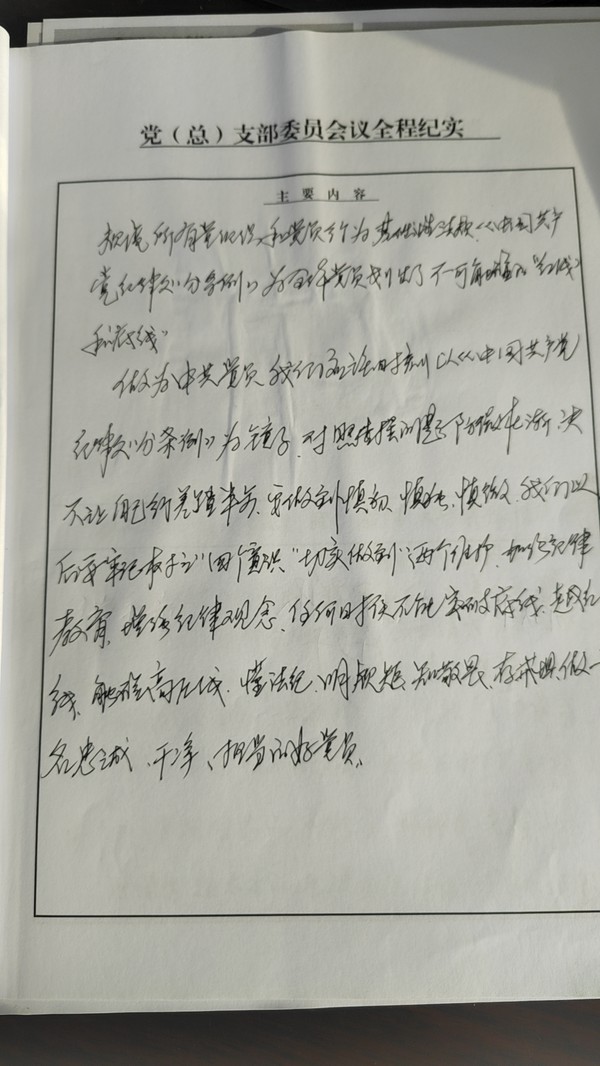 党（总）支部委员会议全程纪实
主要内容
规范所有党组织和党员行为基础性法规《中国共产
党纪律处分条例》为全体党员划出了不可触碰的“红线”
和“底线”
做为中共党员我们应该时刻以《中国共产党
纪律处分条例》为镜子，对照查摆问题防微杜渐，决
不让自己行差踏半步，要做到慎初、慎独、慎微，我们以
后要牢记树立“四个意识”切实做到“两个维护，加强纪律
教育，增强纪律观念，任何时候不能突破底线、越红
线、触碰高压线，懂法纪、明规矩、知敬畏、存戒惧，做一
名忠诚、干净、担当的好党员。